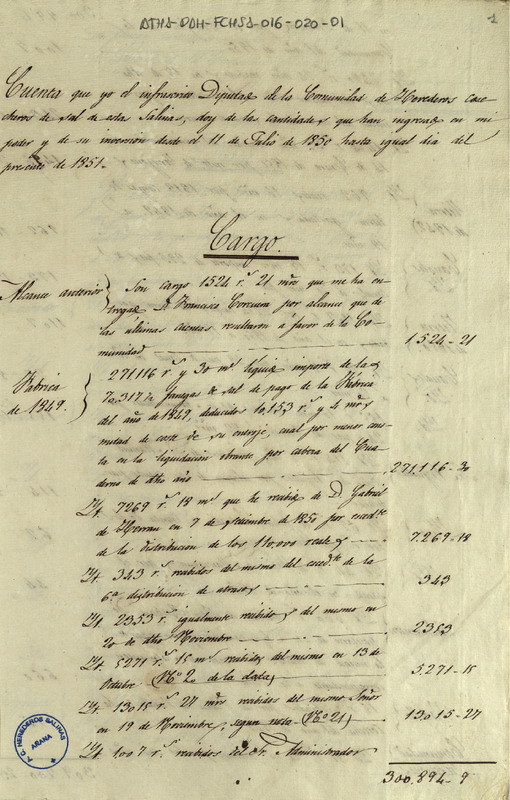 ATHA-DAH-FCHSA-016-020-01
1
Cuenta que yo el infrascrito Diputado de la Comunidad de Herederos Cose-
cheros de sal de estas Salinas, doy de las cantidades que han ingresado en mi
poder y de su inversion desde el 11 de Julio de 1850 hasta igual dia del
presente de 1851.
Cargo.
Alcance anterior } Son cargo 1524 r.s 21 mrs que me ha en-
tregado D. Francisco Corcuera por alcance que de
las ultimas cuentas resultaron á favor de la Co-
munidad 1.524-21
Fabrica de 1849. } 271,116 r.s y 30 m.s liquido importe de las
70.317 fanegas de sal de pago de la Fabrica
del año de 1849, deducidos 10,153 r.s y 4 mrs
mitad de coste de su entroje, cual por menor cons-
ta en la liquidacion obrante por cabeza del Cua-
derno de dho año 271,116-30
Yt. 7269 r.s 18 m.s que he recibido de D. Gabriel
de Herran en 7 de Setiembre de 1850 por
de la distribucion de los 110,000 reales 7.269-18
Yt. 343 r.s recibidos del mismo del de la
6.a distribucion de atrasos 343
Yt. 2353 r.s igualmente recibidos del mismo en
20 de dho Noviembre 2353
Yt. 5271 r.s 15 m.s recibidos del mismo en 13 de
Octubre (N.o 20 de la data) 5.271-15
Yt. 13015 r.s 27 mrs recibidos del mismo Señor
en 19 de Noviembre, segun nota (N.o 21) 13.015-27
Yt. 1007 r.s recibidos del Sr. Administrador
300.894-9
A.C. HEREDEROS SALINAS
AÑANA